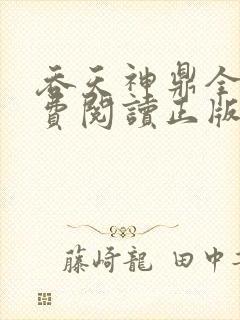 吞天神鼎全
費閱讀正版
藤崎龍 田中